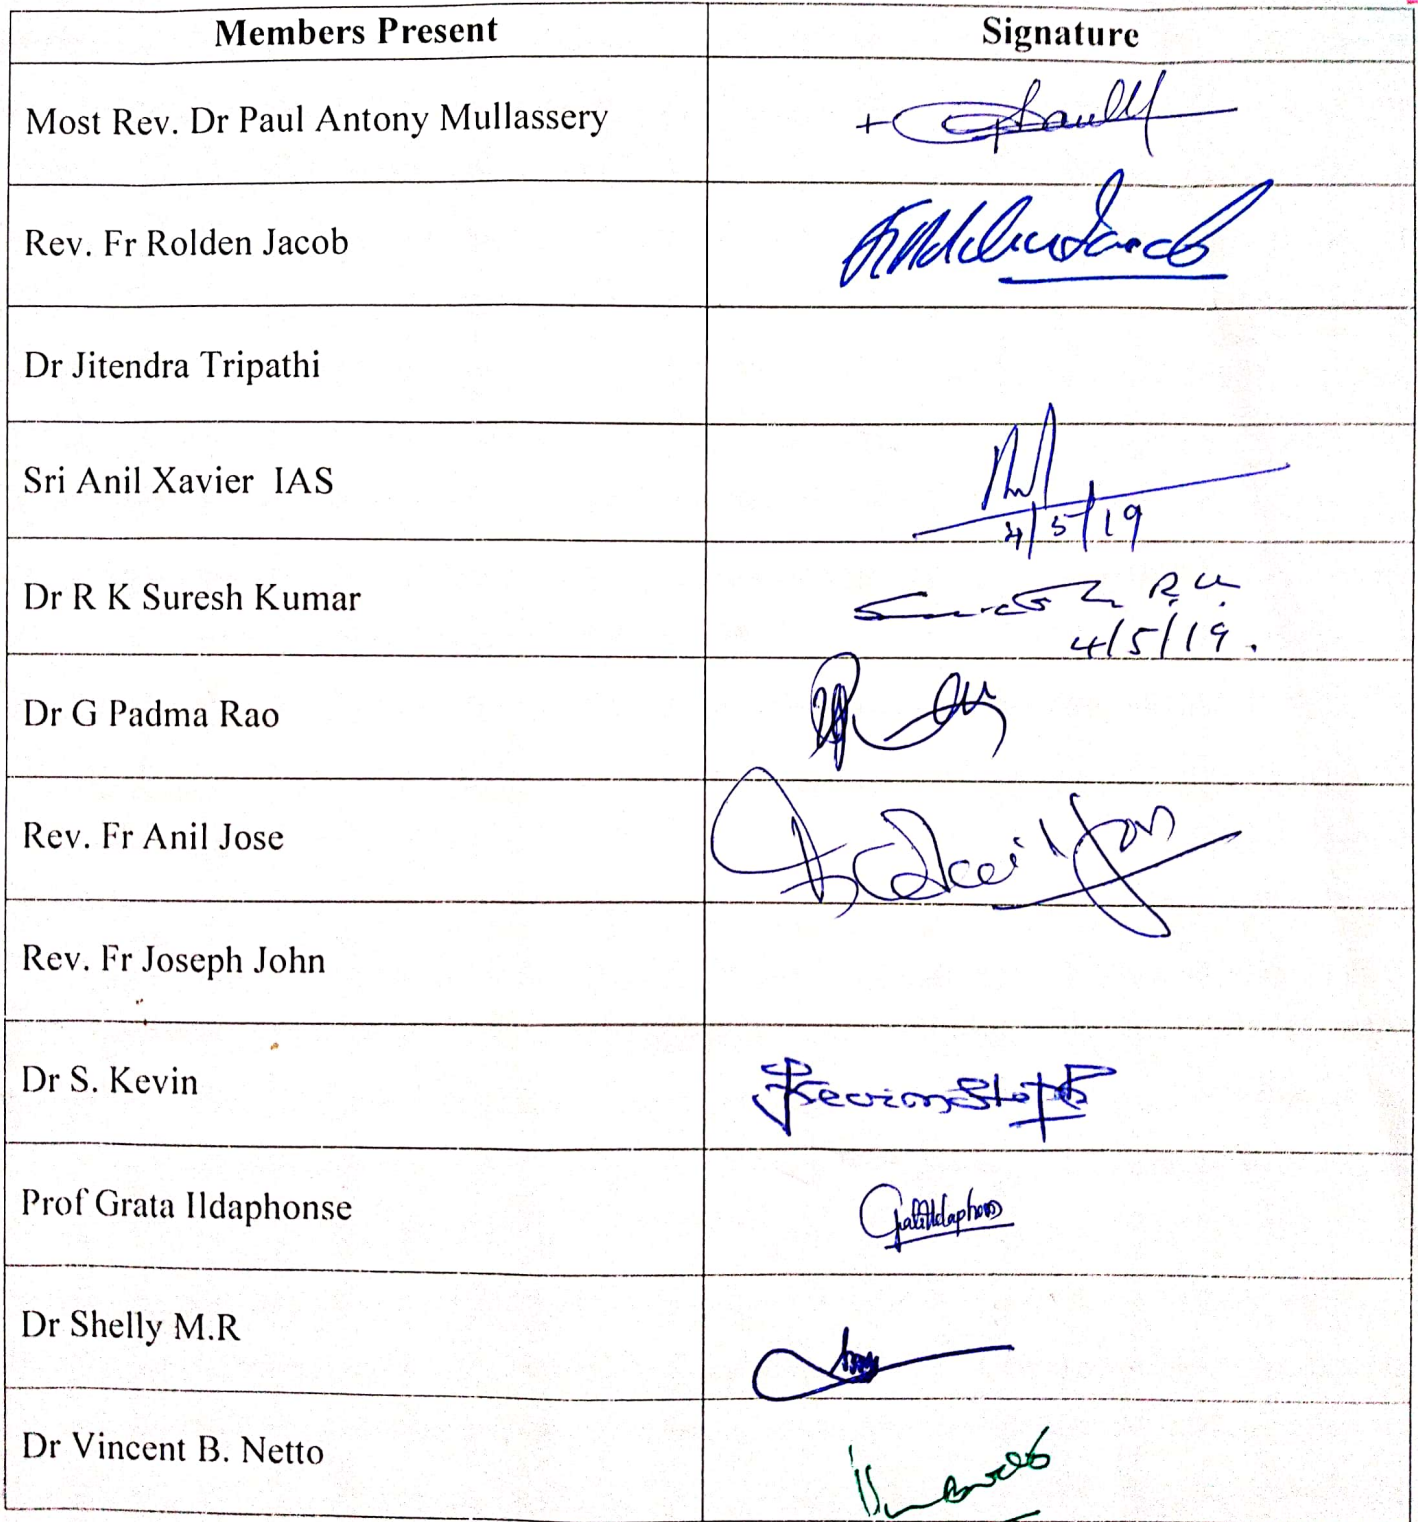 Members Present
Signature
Most Rev. Dr Paul Antony Mullassery
Rev. Fr Rolden Jacob
Dr Jitendra Tripathi
Sri Anil Xavier IAS
4/5/19
Dr R K Suresh Kumar
4/5/19.
Dr G Padma Rao
Rev. Fr Anil Jose
Rev. Fr Joseph John
Dr S. Kevin
Prof Grata Ildaphonse
Dr Shelly M.R
Dr Vincent B. Netto